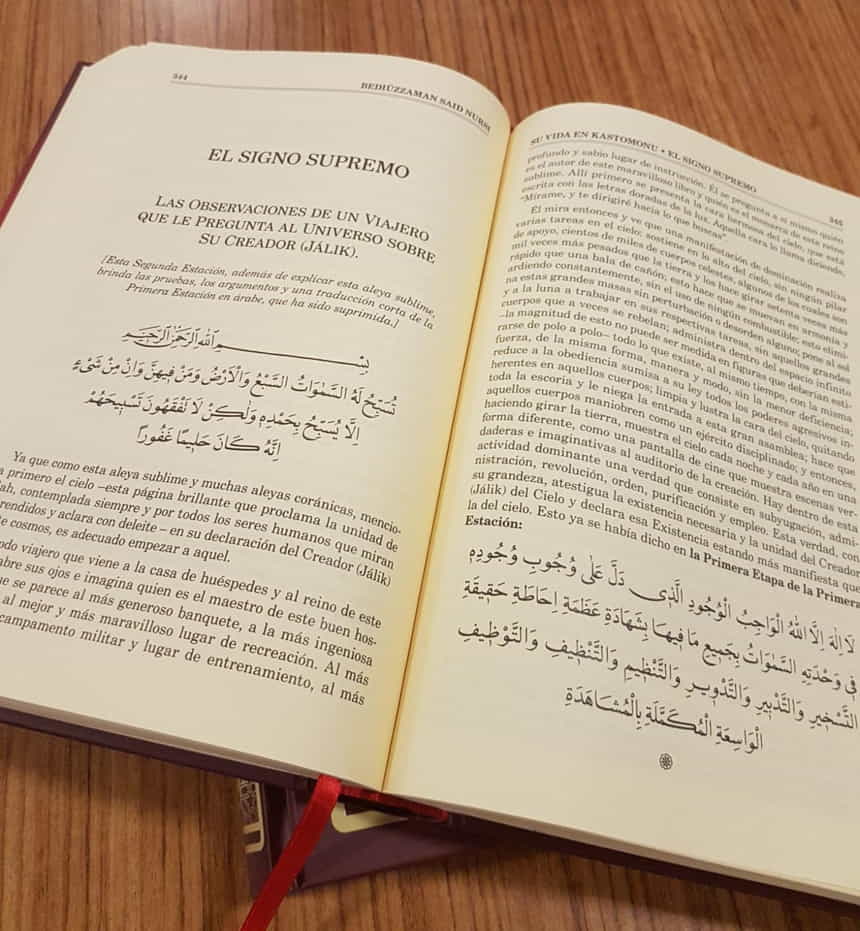 544
BEDIÜZZAMAN SAID NURSI
EL SIGNO SUPREMO
LAS OBSERVACIONES DE UN VIAJERO
QUE LE PREGUNTA AL UNIVERSO SOBRE
SU CREADOR (JÁLIK).
[Esta Segunda Estación, además de explicar esta aleya sublime,
brinda las pruebas, los argumentos y una traducción corta de la
Primera Estación en árabe, que ha sido suprimida.]
بِسْــمِ اللهِ الرَّحْمٰنِ الرَّحِيــمِ
تُسَبِّحُ لَهُ السَّمٰوَاتُ السَّبْعُ وَالْاَرْضُ وَمَنْ فِيهِنَّ وَاِنْ مِنْ شَىْءٍ
اِلَّا يُسَبِّحُ بِحَمْدِهِ وَلٰكِنْ لَا تَفْقَهُونَ تَسْبِيحَهُمْ
اِنَّهُ كَانَ حَلِيمًا غَفُورًا
Ya que como esta aleya sublime y muchas aleyas coránicas, mencio-
a primero el cielo –esta página brillante que proclama la unidad de
ah, contemplada siempre y por todos los seres humanos que miran
rendidos y aclara con deleite – en su declaración del Creador (Jálik)
e cosmos, es adecuado empezar a aquel.
odo viajero que viene a la casa de huéspedes y al reino de este
abre sus ojos e imagina quien es el maestro de este buen hos-
ue se parece al más generoso banquete, a la más ingeniosa
al mejor y más maravilloso lugar de recreación. Al más
campamento militar y lugar de entrenamiento, al más
SU VIDA EN KASTOMONU • EL SIGNO SUPREMO
545
profundo y sabio lugar de instrucción. Él se pregunta a sí mismo quién
es el autor de este maravilloso libro y quién es el monarca de este reino
sublime. Allí primero se presenta la cara hermosa del cielo, que está
escrita con las letras doradas de la luz. Aquella cara lo llama diciendo,
"Mírame, y te dirigiré hacia lo que buscas".
Él mira entonces y ve que una manifestación de dominación realiza
varias tareas en el cielo: sostiene en lo alto del cielo, sin ningún pilar
de apoyo, cientos de miles de cuerpos celestes, algunos de los cuales son
mil veces más pesados que la tierra y los hace girar setenta veces más
rápido que una bala de cañón; esto hace que se mueven en armonía y
ardiendo constantemente, sin el uso de ningún combustible; esto elimi-
na estas grandes masas sin perturbación o desorden alguno; pone al sol
y a la luna a trabajar en sus respectivas tareas, sin aquellos grandes
cuerpos que a veces se rebelan; administra dentro del espacio infinito
–la magnitud de esto no puede ser medida en figuras que deberían esti-
rarse de polo a polo– todo lo que existe, al mismo tiempo, con la misma
fuerza, de la misma forma, manera y modo, sin la menor deficiencia;
reduce a la obediencia sumisa a su ley todos los poderes agresivos in-
herentes en aquellos cuerpos; limpia y lustra la cara del cielo, quitando
toda la escoria y le niega la entrada a esta gran asamblea; hace que
aquellos cuerpos maniobren como un ejército disciplinado; y entonces,
haciendo girar la tierra, muestra el cielo cada noche y cada año en una
forma diferente, como una pantalla de cine que muestra escenas ver-
daderas e imaginativas al auditorio de la creación. Hay dentro de esta
actividad dominante una verdad que consiste en subyugación, admi-
nistración, revolución, orden, purificación y empleo. Esta verdad, con
su grandeza, atestigua la existencia necesaria y la unidad del Creador
(Jálik) del Cielo y declara esa Existencia estando más manifiesta que
la del cielo. Esto ya se había dicho en la Primera Etapa de la Primera
Estación:
لَا اِلٰهَ اِلَّا اللهُ الْوَاجِبُ الْوُجُودِ الَّذِى دَلَّ عَلٰى وُجُوبِ وُجُودِهِ
فِى وَحْدَتِهِ السَّمٰوَاتُ بِجَمِيعِ مَا فِيهَا بِشَهَادَةِ عَظَمَةِ اِحَاطَةِ حَقِيقَةِ
التَّسْخِيرِ وَالتَّدْبِيرِ وَالتَّدْوِيرِ وَالتَّنْظِيمِ وَالتَّنْظِيفِ وَالتَّوْظِيفِ
الْوَاسِعَةِ الْمُكَمَّلَةِ بِالْمُشَاهَدَةِ